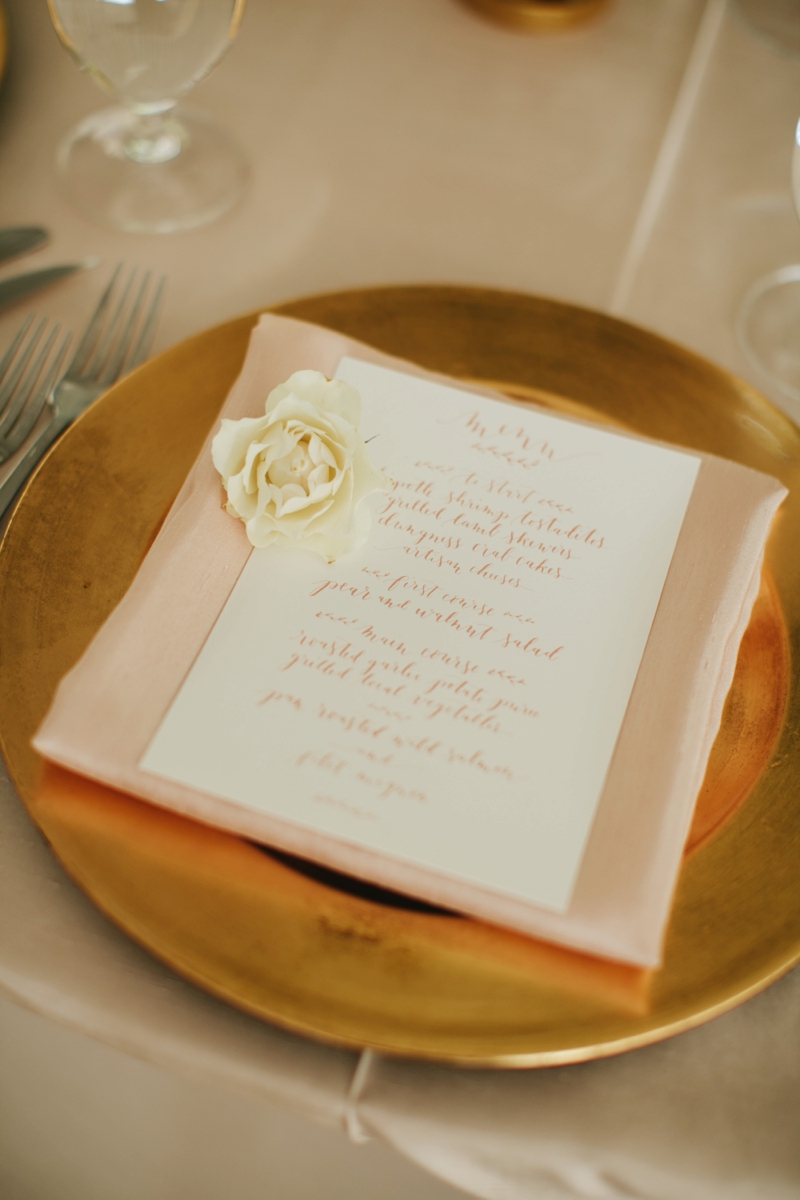 menu
to start
shrimp tostadetes
grilled lamb skewers
dungness crab cakes
artisan cheeses
first course
pear and walnut salad
main course
roasted garlic potato puree
grilled local vegetables
pan roasted wild salmon
and
filet mignon